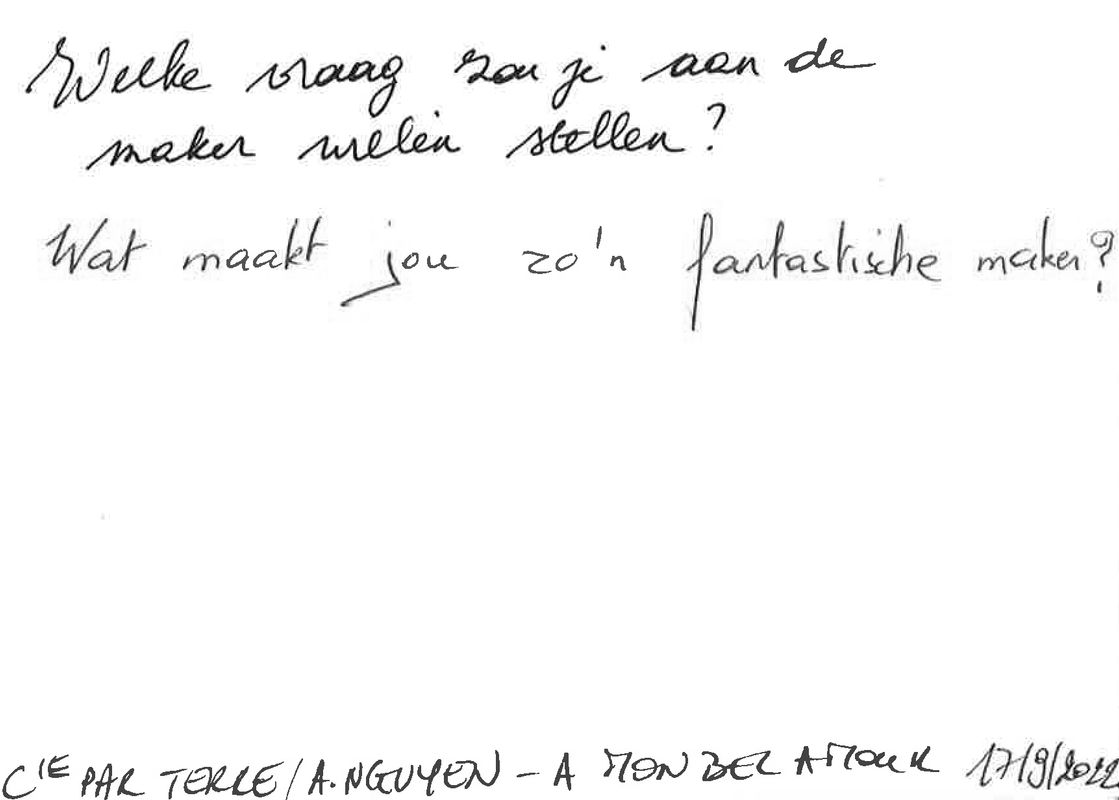 Welke vraag zou je aan de
maker willen stellen?
Wat maakt jou zo'n fantastische maker?
CIE PAR TERRE / A. NGUYEN - A MON BEL AMOUR 17/9/2022